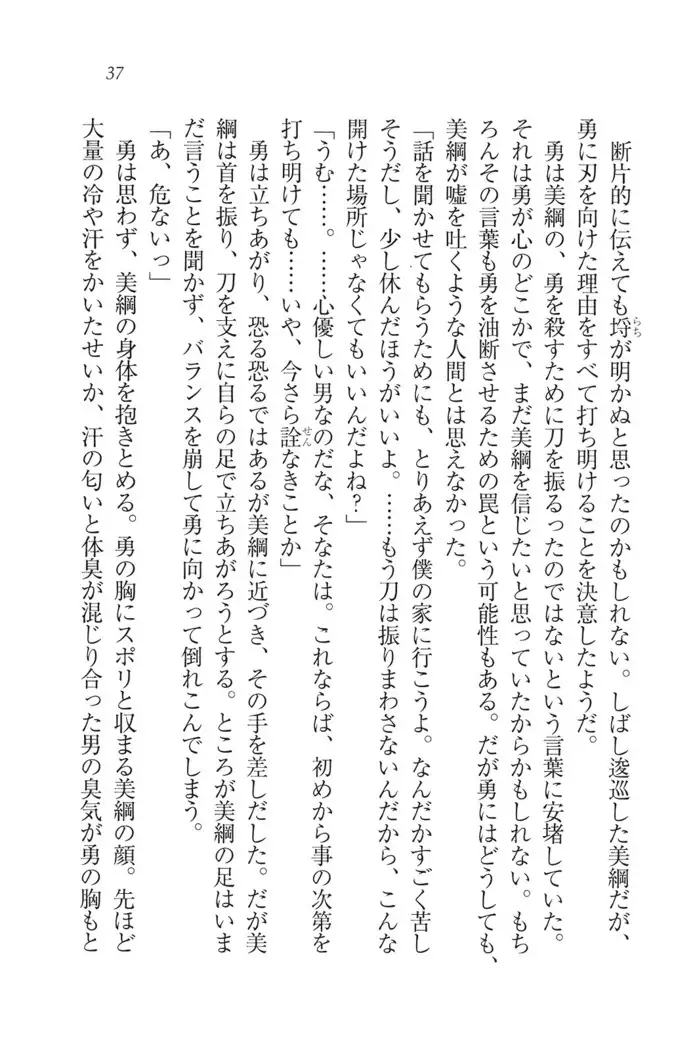 37
断片的に伝えても埒が明かぬと思ったのかもしれない。しばし逡巡した美綱だが、
勇に刃を向けた理由をすべて打ち明けることを決意したようだ。
勇は美綱の、勇を殺すために刀を振るったのではないという言葉に安堵していた。
それは勇が心のどこかで、まだ美綱を信じたいと思っていたからかもしれない。もち
ろんその言葉も勇を油断させるための罠という可能性もある。だが勇にはどうしても、
美綱が嘘を吐くような人間とは思えなかった。
「話を聞かせてもらうためにも、とりあえず僕の家に行こうよ。なんだかすごく苦し
そうだし、少し休んだほうがいいよ。……もう刀は振りまわさないんだから、こんな
開けた場所じゃなくてもいいんだよね？」
「うむ……。……心優しい男なのだな、そなたは。これならば、初めから事の次第を
打ち明けても……いや、今さら詮なきことか」
勇は立ちあがり、恐る恐るではあるが美綱に近づき、その手を差しだした。だが美
綱は首を振り、刀を支えに自らの足で立ちあがろうとする。ところが美綱の足はいま
だ言うことを聞かず、バランスを崩して勇に向かって倒れこんでしまう。
「あ、危ないっ」
勇は思わず、美綱の身体を抱きとめる。勇の胸にスポリと収まる美綱の顔。先ほど
大量の冷や汗をかいたせいか、汗の匂いと体臭が混じり合った男の臭気が勇の胸もと
らち
せん